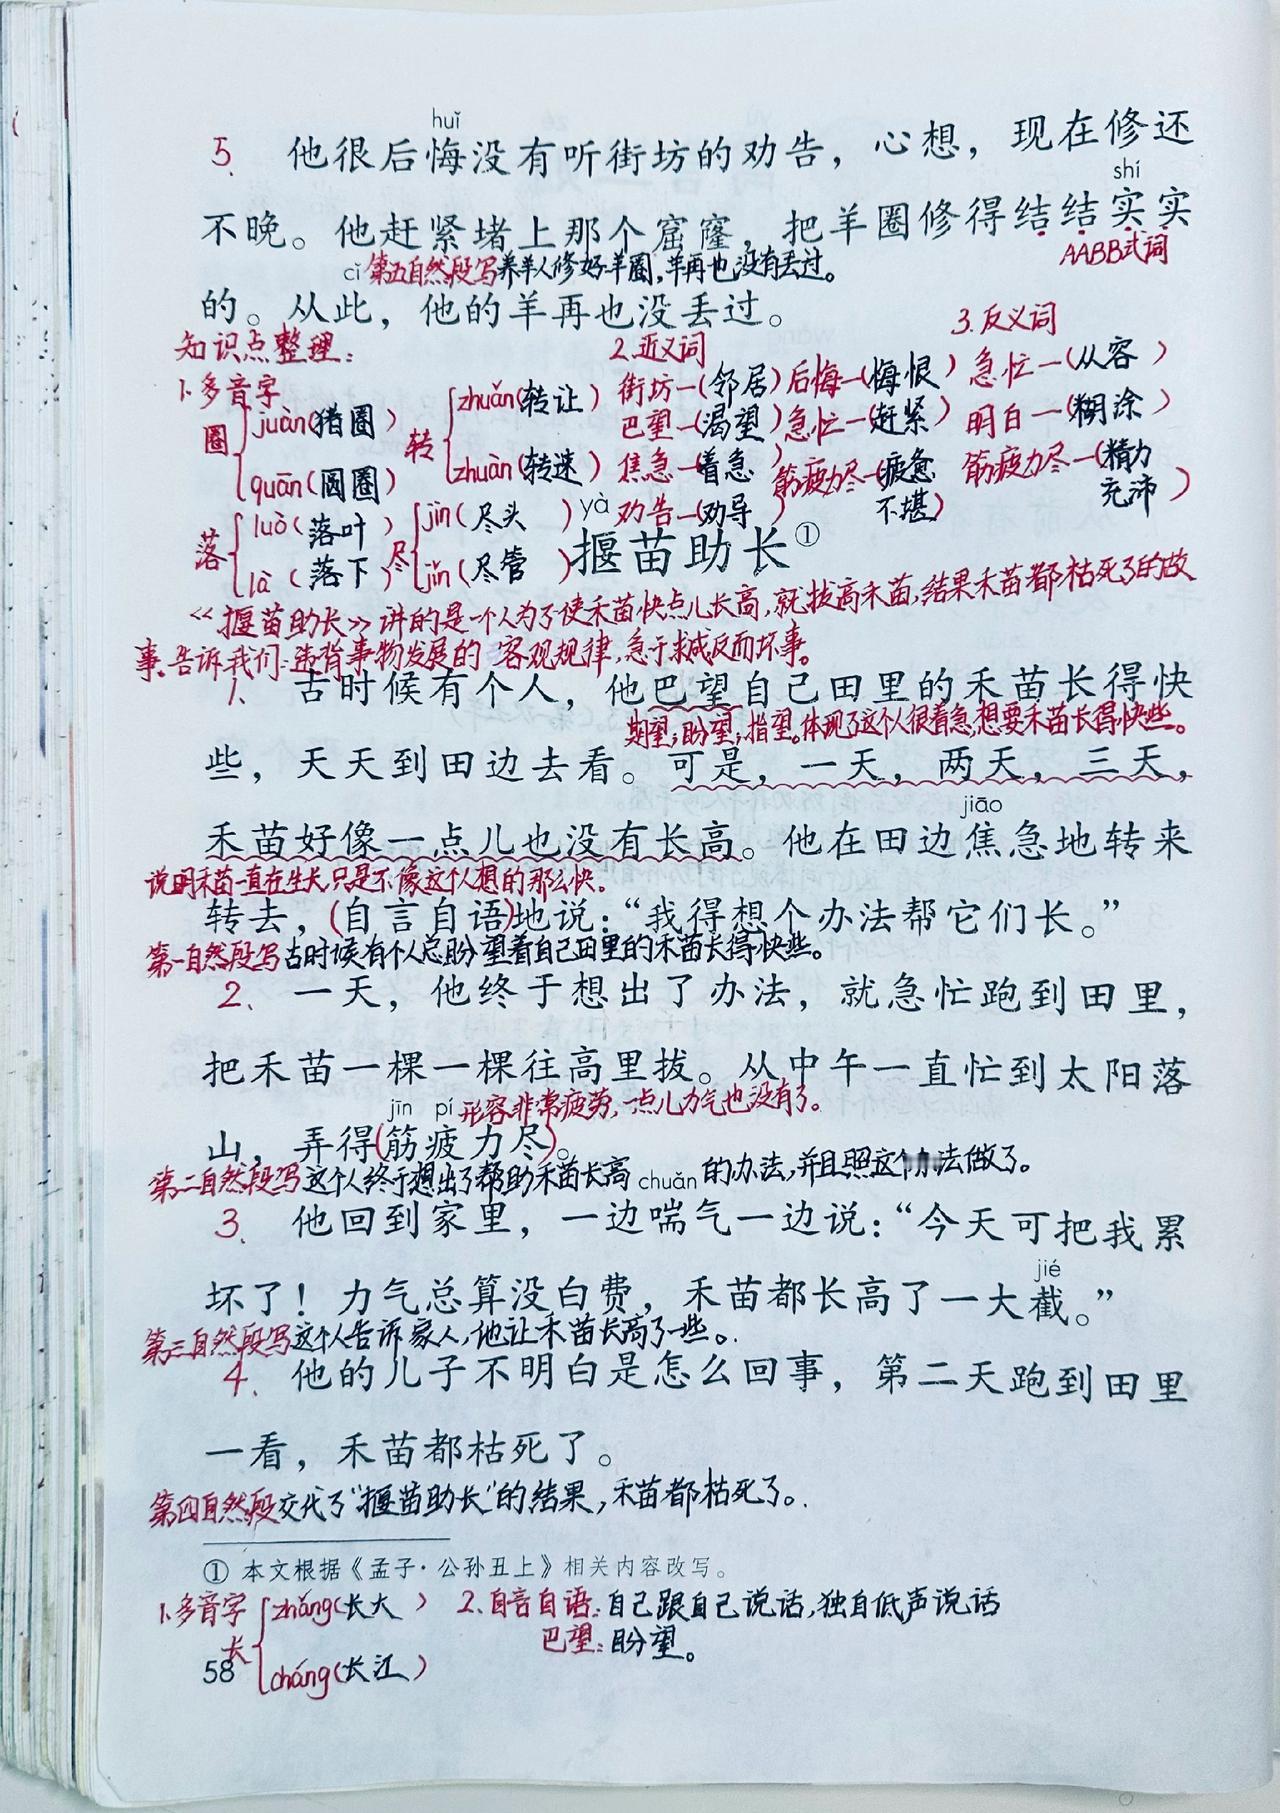 huǐ
5、 他很后悔没有听街坊的劝告，心想，现在修还
shí
不晚。他赶紧堵上那个窟窿，把羊圈修得结结实实
cǐ 第五自然段写养羊人修好羊圈，羊再也没有丢过。 AABB式词
的。从此，他的羊再也没丢过。
知识点整理：
1、多音字
圈 juàn（猪圈） quān（圆圈）
转 zhuǎn（转让） zhuàn（转速）
落 luò（落叶） là（落下）
尽 jìn（尽头） jǐn（尽管）
2、近义词
街坊—（邻居）后悔—（悔恨）
巴望—（渴望）急忙—（赶紧）
焦急—（着急）筋疲力尽—（疲惫不堪）
劝告—（劝导）
3、反义词
急忙—（从容）
明白—（糊涂）
筋疲力尽—（精力充沛）
yà
揠苗助长①
《揠苗助长》讲的是一个人为了使禾苗快点儿长高，就拔高禾苗，结果禾苗都枯死了的故
事。告诉我们：违背事物发展的客观规律，急于求成反而坏事。
1、 古时候有个人，他巴望自己田里的禾苗长得快
期望；盼望；指望。体现了这个人很着急，想要禾苗长得快些。
些，天天到田边去看。可是，一天，两天，三天，
jiāo
禾苗好像一点儿也没有长高。他在田边焦急地转来
说明禾苗一直在生长，只是不像这个人想的那么快。
转去，（自言自语）地说：“我得想个办法帮它们长。”
第一自然段写古时候有个人总盼望着自己田里的禾苗长得快些。
2、 一天，他终于想出了办法，就急忙跑到田里，
把禾苗一棵一棵往高里拔。从中午一直忙到太阳落
jīn pí 形容非常疲劳，一点儿力气也没有了。
山，弄得（筋疲力尽）。
第二自然段写这个人终于想出了帮助禾苗长高 chuǎn 的办法，并且照这个办法做了。
3、 他回到家里，一边喘气一边说：“今天可把我累
jié
坏了！力气总算没白费，禾苗都长高了一大截。”
第三自然段写这个人告诉家人，他让禾苗长高了一些。
4、 他的儿子不明白是怎么回事，第二天跑到田里
一看，禾苗都枯死了。
第四自然段交代了“揠苗助长”的结果，禾苗都枯死了。
① 本文根据《孟子·公孙丑上》相关内容改写。
1、多音字 长 zhǎng（长大） cháng（长江）
2、自言自语：自己跟自己说话，独自低声说话
巴望：盼望。
58